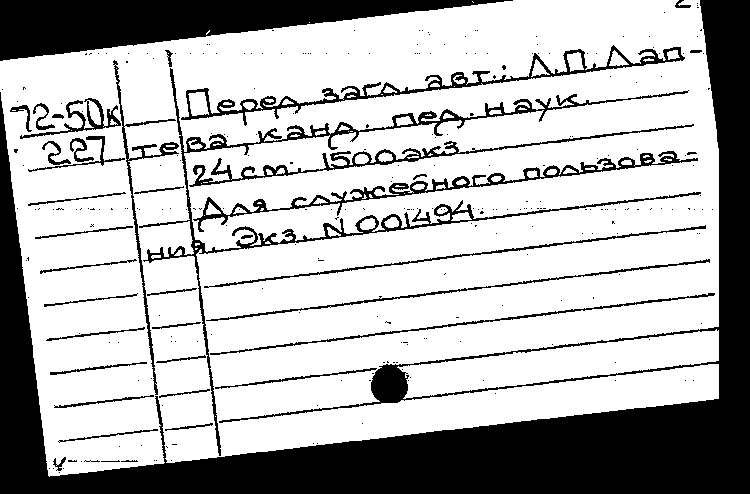 2
Перед загл. авт.: Л.П. Лап-
72-50к
тева, канд. пед. наук.
227
24 см. 1500 экз.
Для служебного пользова-
ния. Экз. N 001494.